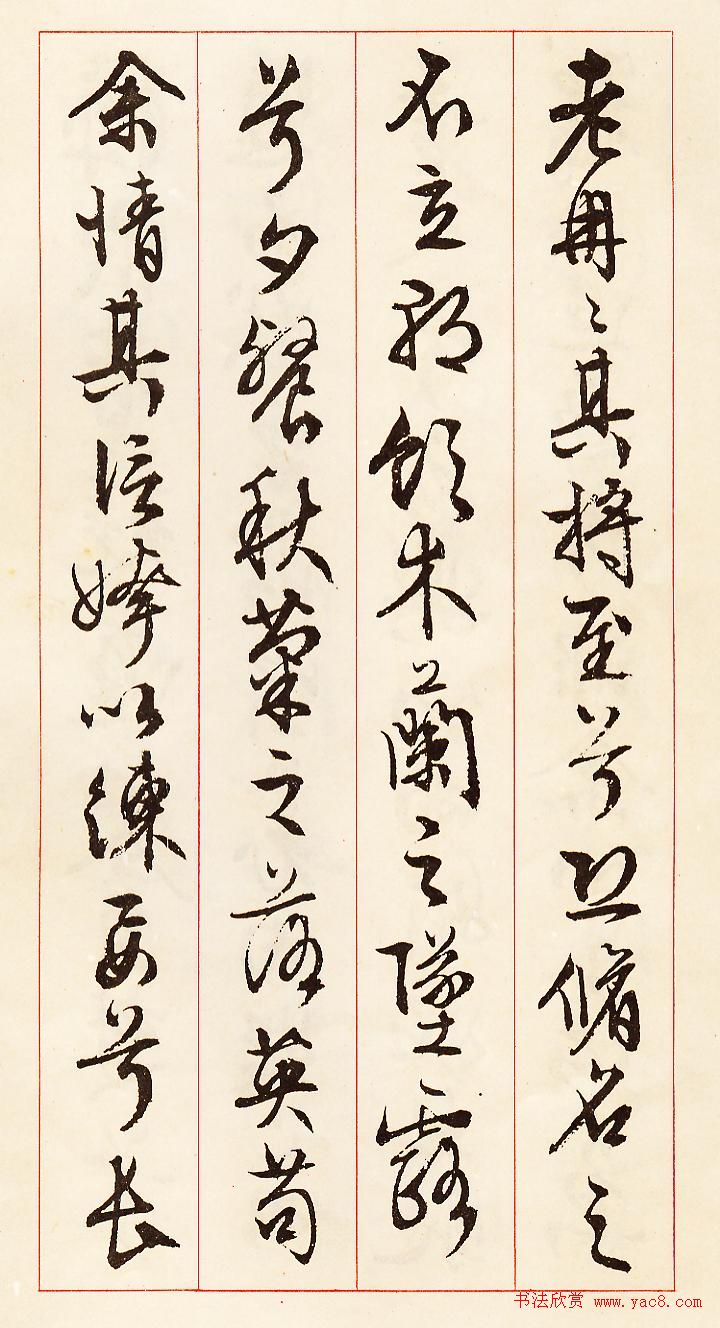 老冉〻其將至兮恐脩名之
不立朝飲木蘭之墜露
兮夕餐秋菊之落英苟
余情其信姱以練要兮長
书法欣赏 www.yac8.com